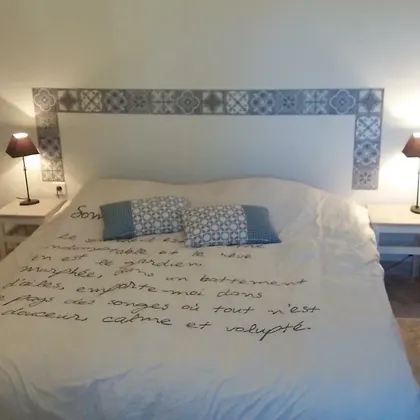 Som
Le sommeil est
indomptable et le rêve
en est le gardien.
morphée, dans un battement
d'ailes, emporte-moi dans
le pays des songes où tout n'est
douceur, calme et volupté.